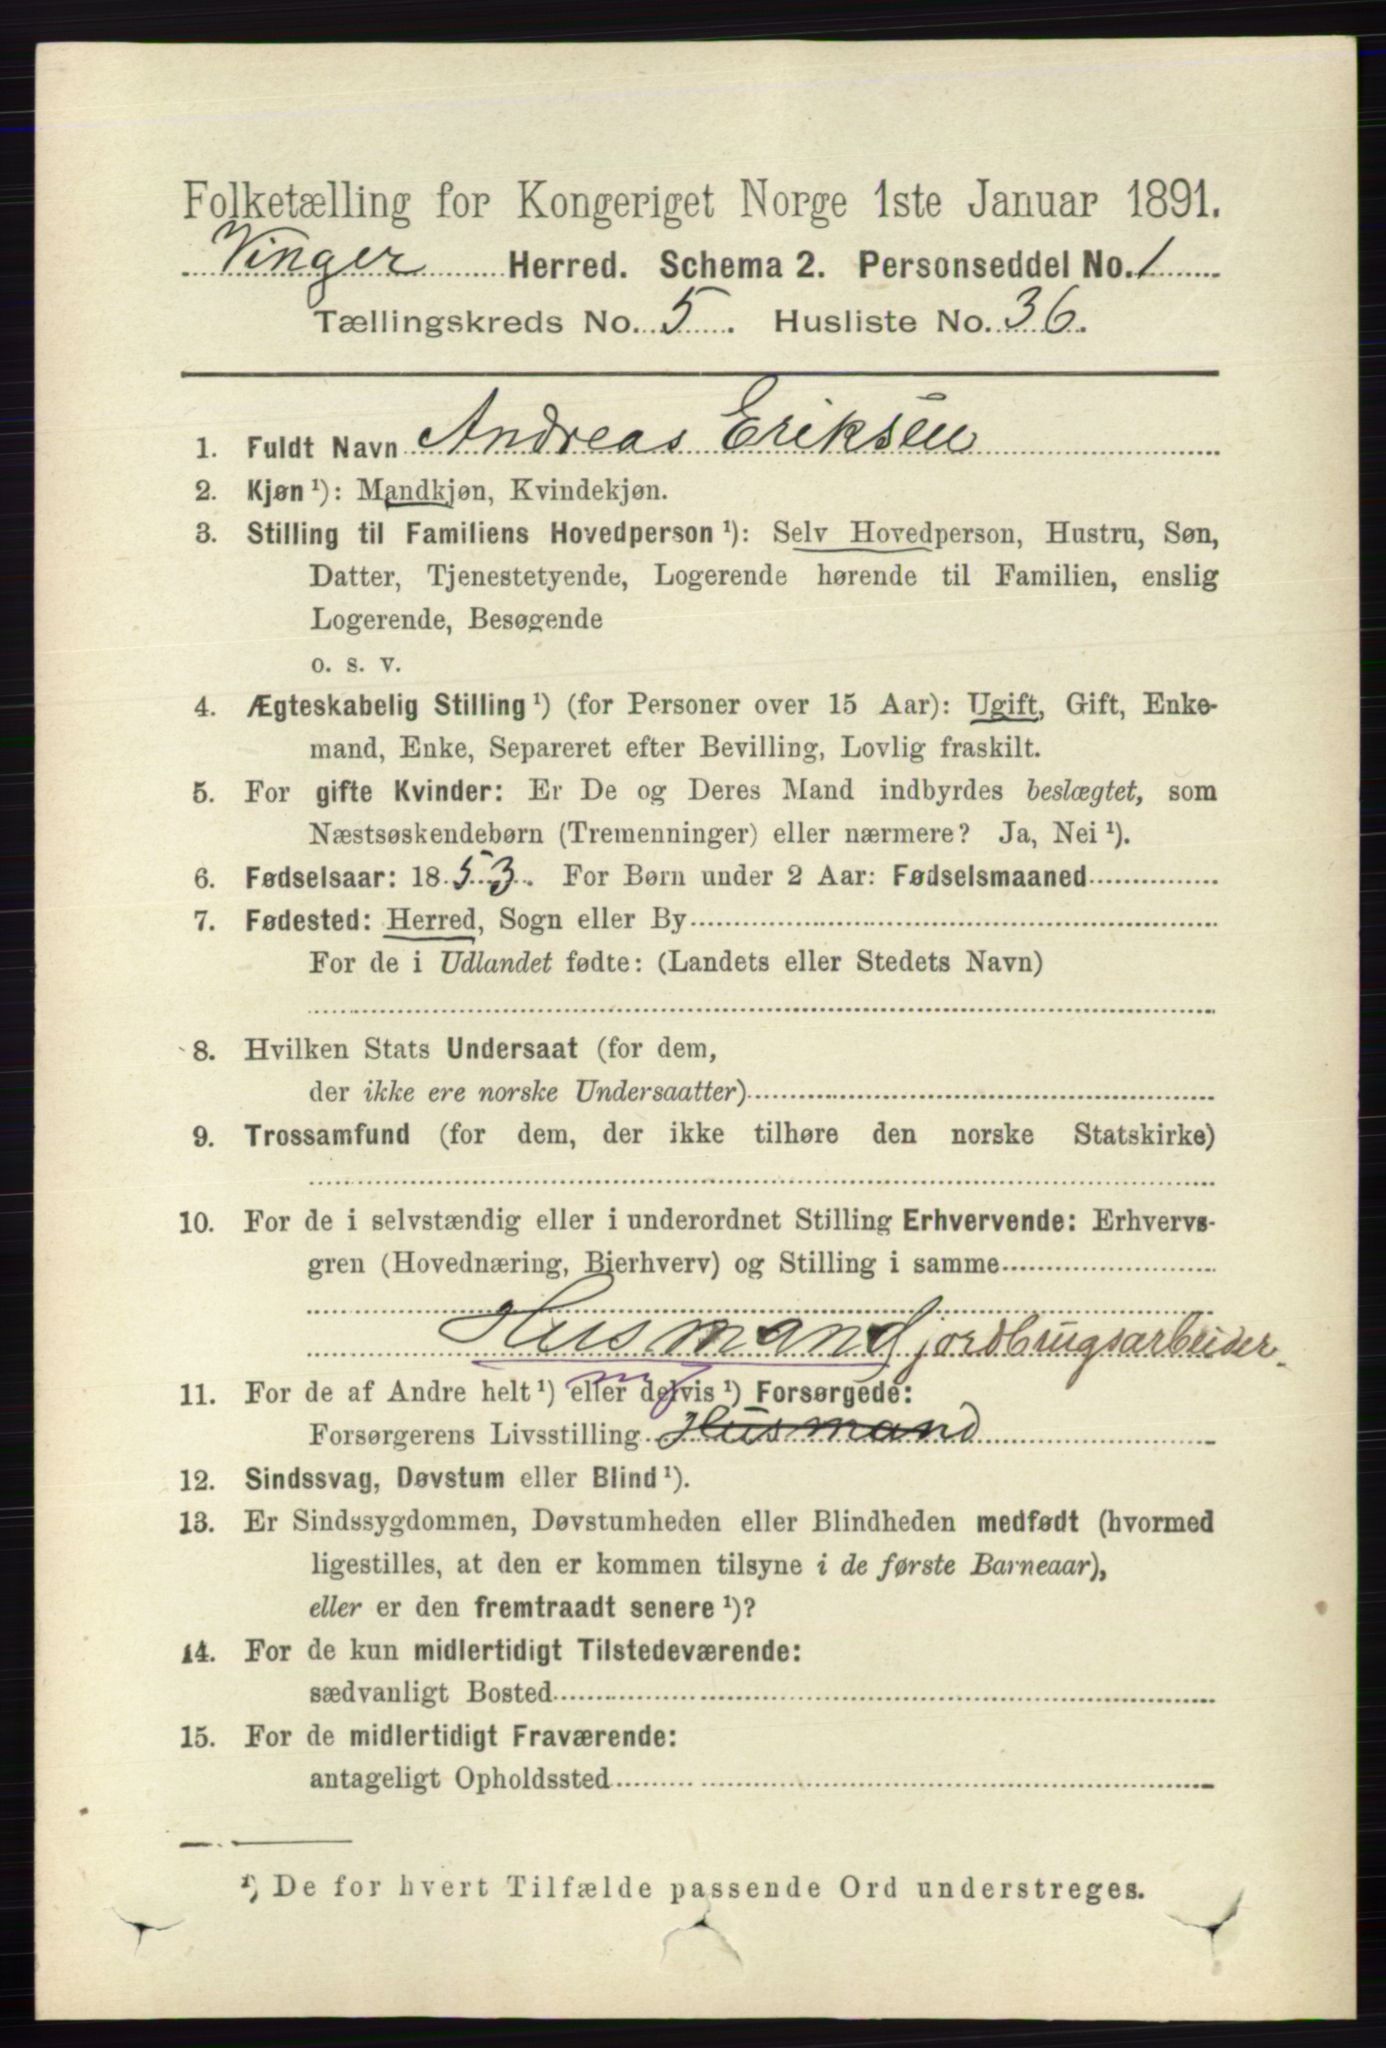 Folketælling for Kongeriget Norge 1ste Januar 1891.
Vinger Herred. Schema 2. Personseddel No. 1
Tællingskreds No. 5. Husliste No. 36.
1. Fuldt Navn Andreas Eriksen
2. Kjøn ¹): Mandkjøn, Kvindekjøn.
3. Stilling til Familiens Hovedperson ¹): Selv Hovedperson, Hustru, Søn,
Datter, Tjenestetyende, Logerende hørende til Familien, enslig
Logerende, Besøgende
o. s. v.
4. Ægteskabelig Stilling ¹) (for Personer over 15 Aar): Ugift, Gift, Enke-
mand, Enke, Separeret efter Bevilling, Lovlig fraskilt.
5. For gifte Kvinder: Er De og Deres Mand indbyrdes beslægtet, som
Næstsøskendebørn (Tremenninger) eller nærmere? Ja, Nei ¹).
6. Fødselsaar: 1853. For Børn under 2 Aar: Fødselsmaaned
7. Fødested: Herred, Sogn eller By
For de i Udlandet fødte: (Landets eller Stedets Navn)
8. Hvilken Stats Undersaat (for dem,
der ikke ere norske Undersaatter)
9. Trossamfund (for dem, der ikke tilhøre den norske Statskirke)
10. For de i selvstændig eller i underordnet Stilling Erhvervende: Erhvervs-
gren (Hovednæring, Bierhverv) og Stilling i samme
Husmand jordbrugsarbeider
11. For de af Andre helt ¹) eller delvis ¹) Forsørgede:
Forsørgerens Livsstilling Husmand
12. Sindssvag, Døvstum eller Blind ¹).
13. Er Sindssygdommen, Døvstumheden eller Blindheden medfødt (hvormed
ligestilles, at den er kommen tilsyne i de første Barneaar),
eller er den fremtraadt senere ¹)?
14. For de kun midlertidigt Tilstedeværende:
sædvanligt Bosted
15. For de midlertidigt Fraværende:
antageligt Opholdssted
¹) De for hvert Tilfælde passende Ord understreges.